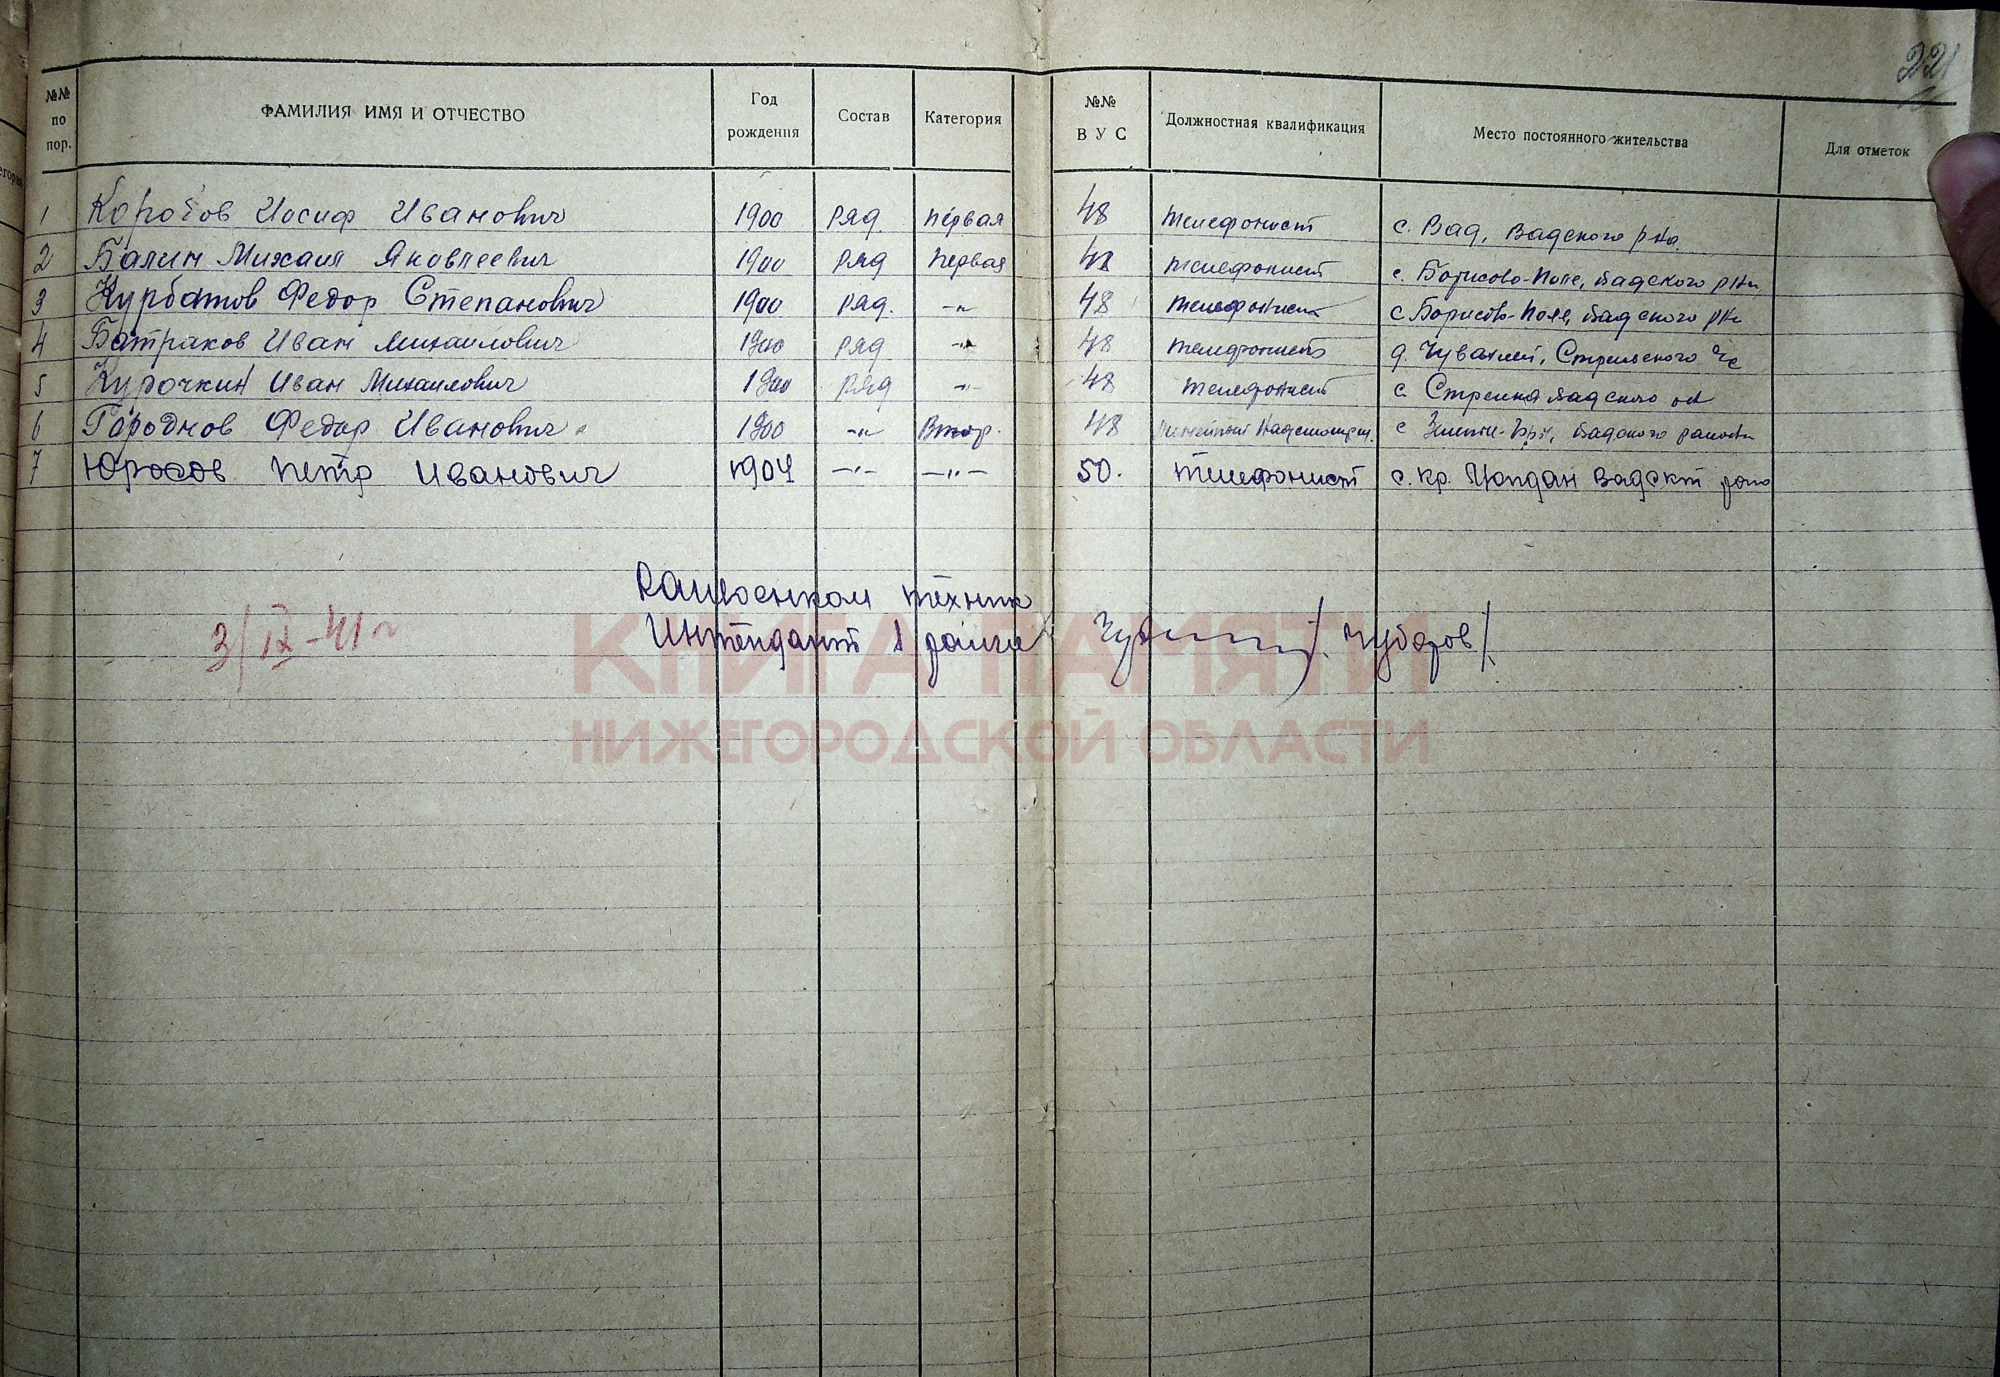 221
№№ по пор. ФАМИЛИЯ ИМЯ И ОТЧЕСТВО Год рождения Состав Категория №№ ВУС Должностная квалификация Место постоянного жительства Для отметок
1 Коробов Иосиф Иванович 1900 ряд. первая 48 телефонист с. Вад, Вадского р-на
2 Балин Михаил Яковлеевич 1900 ряд первая 48 телефонист с. Борисово-Поле, Вадского р-на
3 Курбатов Федор Степанович 1900 ряд. -"- 48 телефонист с Борисово-Поле, Вадского р-на
4 Батраков Иван Михаилович 1900 ряд -"- 48 телефонист д. Стрельского
5 Курочкин Иван Михаилович 1900 ряд -"- 48 телефонист с. Стрелка Вадского
6 Городнов Федор Иванович 1900 -"- Втор. 48 с Вадского района
7 Юросов Петр Иванович 1904 -"- -"- 50. телефонист с. Кр.
Райвоенком техник
Интендант 1 ранга /Чубаров/.
3/IX-41 г
КНИГА ПАМЯТИ
НИЖЕГОРОДСКОЙ ОБЛАСТИ